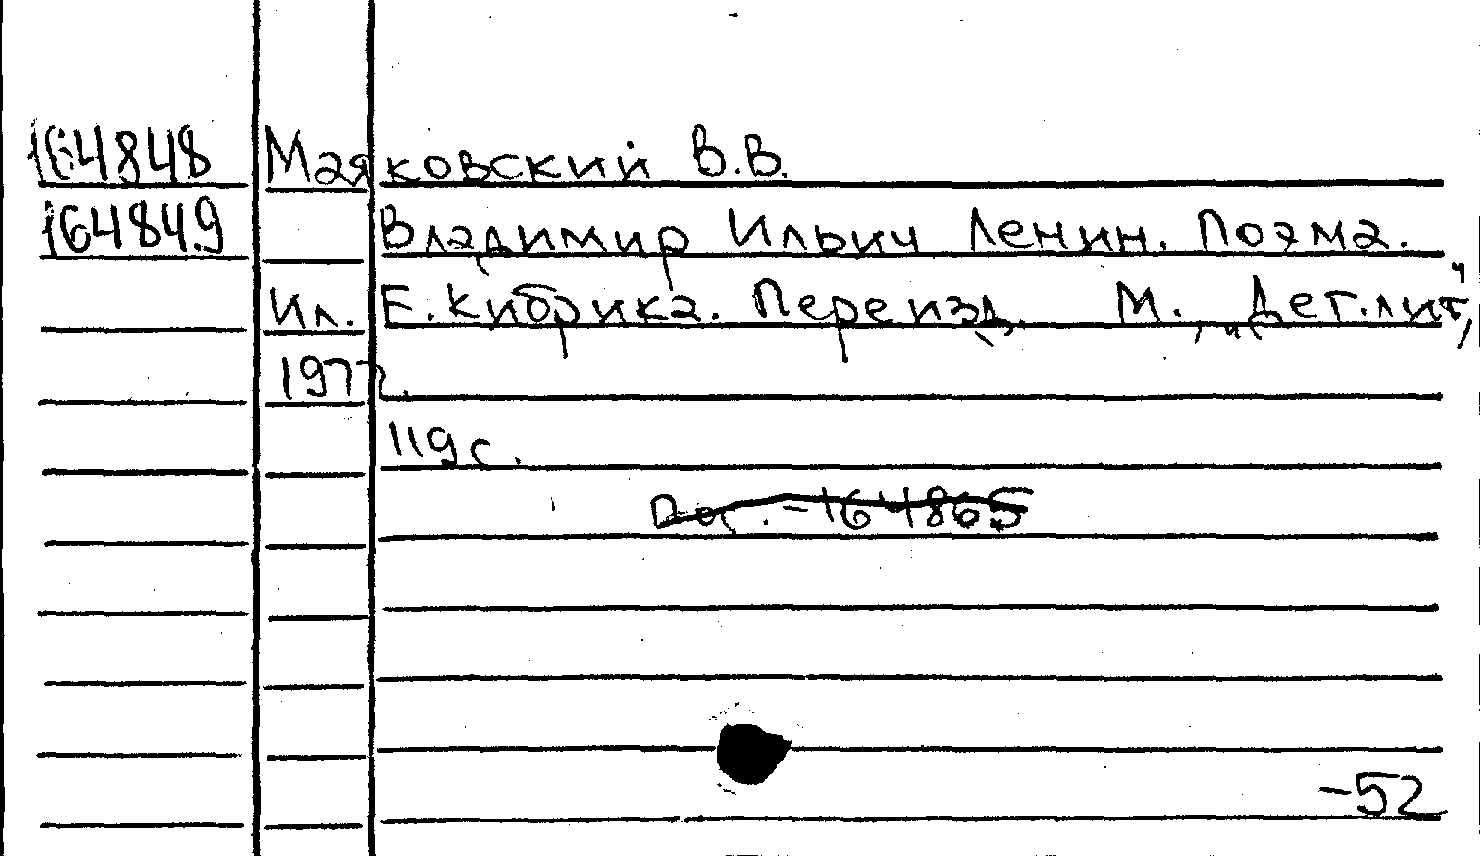 164848 Маяковский В.В.
164849 Владимир Ильич Ленин. Поэма.
Ил. Е. Кибрика. Переизд. М., "Дет. лит",
1977.
119 с.
164865
-52